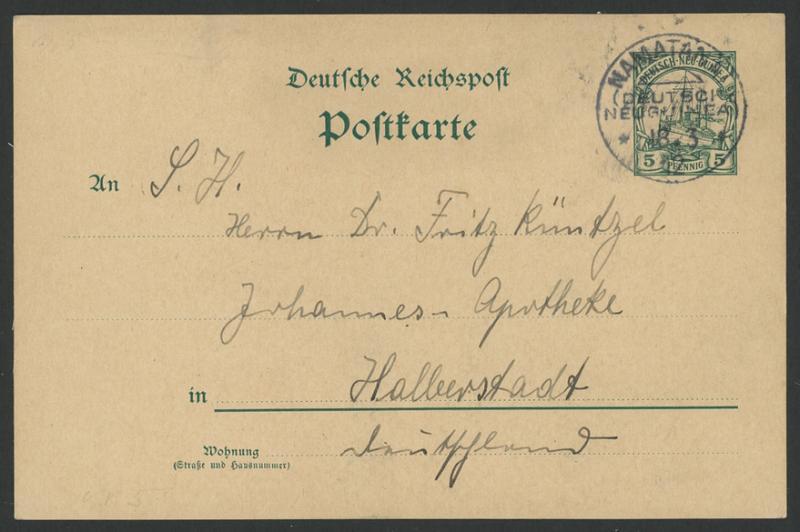 Deutsche Reichspost
Postkarte
DEUTSCH-NEU-GUINEA
5 PFENNIG 5
NAMATANAI
DEUTSCH
NEUGUINEA
18 3
12
An S. H.
Herrn Dr. Fritz Küntzel
Johannes-Apotheke
in Halberstadt
Deutschland
Wohnung
(Straße und Hausnummer)